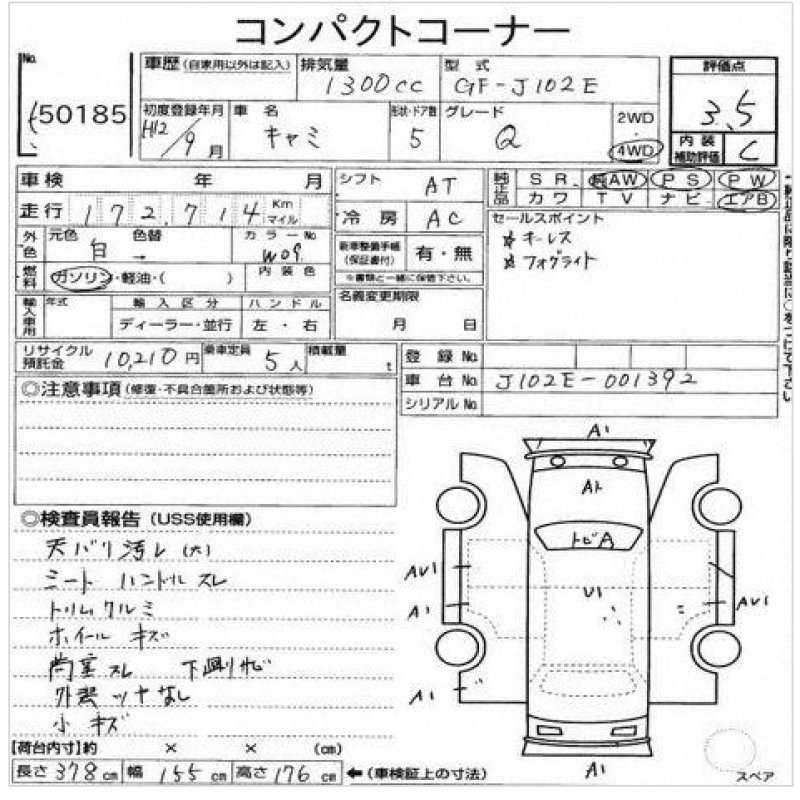 コンパクトコーナー
No.
50185
車歴 (自家用以外は記入)
排気量
1300cc
型式
GF-J102E
評価点
3.5
初度登録年月
H12/9月
車名
キャミ
形状・ドア数
5
グレード
Q
2WD
4WD
内装補助評価
C
車検 年 月
シフト
AT
純正品
SR
純AW
PS
PW
カワ
TV
ナビ
エアB
走行
172,714
Km
マイル
冷房
AC
セールスポイント
*キーレス
*フォグライト
外色
元色
白
色替
→
カラーNo
W09
新車整備手帳(保証書付)
有・無
※書類と一緒に保管下さい。
燃料
ガソリン・軽油・( )
内装色
名義変更期限
月 日
輸入車用
年式
輸入区分
ディーラー・並行
ハンドル
左・右
リサイクル預託金
10,210円
乗車定員
5人
積載量
t
登録No.
車台No.
J102E-001392
シリアルNo.
◎注意事項(修復・不具合箇所および状態等)
◎検査員報告(USS使用欄)
天バリ汚レ(大)
シート ハンドル スレ
トリム クルミ
ホイール キズ
荷室スレ 下廻りサビ
外装ツヤなし
小キズ
A1
トビA
U1
AU1
A1
AU1
A1
A1
スペア
【荷台内寸】約 × × (cm)
長さ 378cm 幅 155cm 高さ 176cm ←(車検証上の寸法)